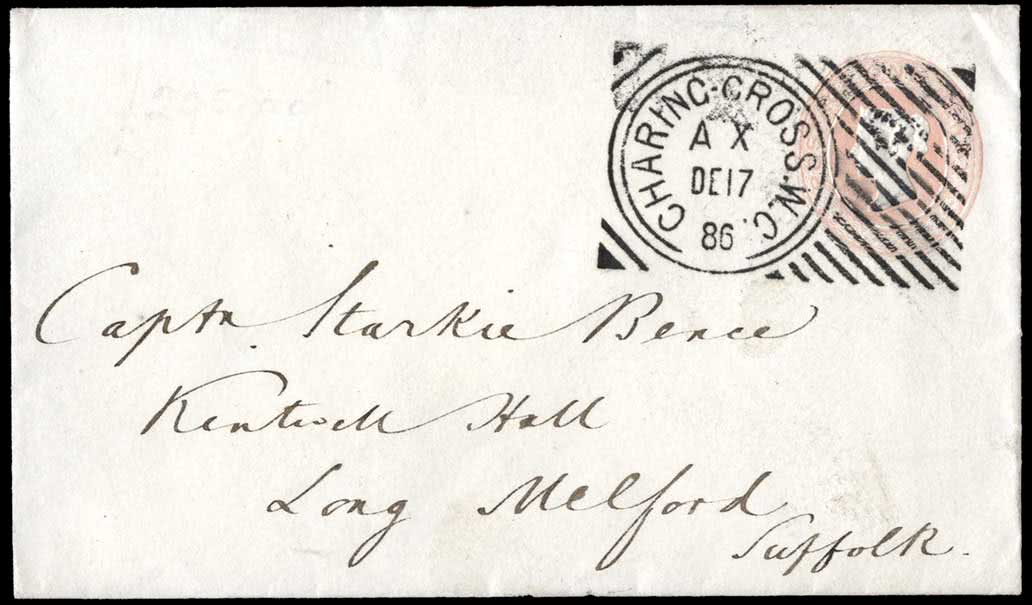 CHARING-CROSS.W.C.
A X
DE 17
86
Captn Starkie Bence
Kentwell Hall
Long Melford
Suffolk.